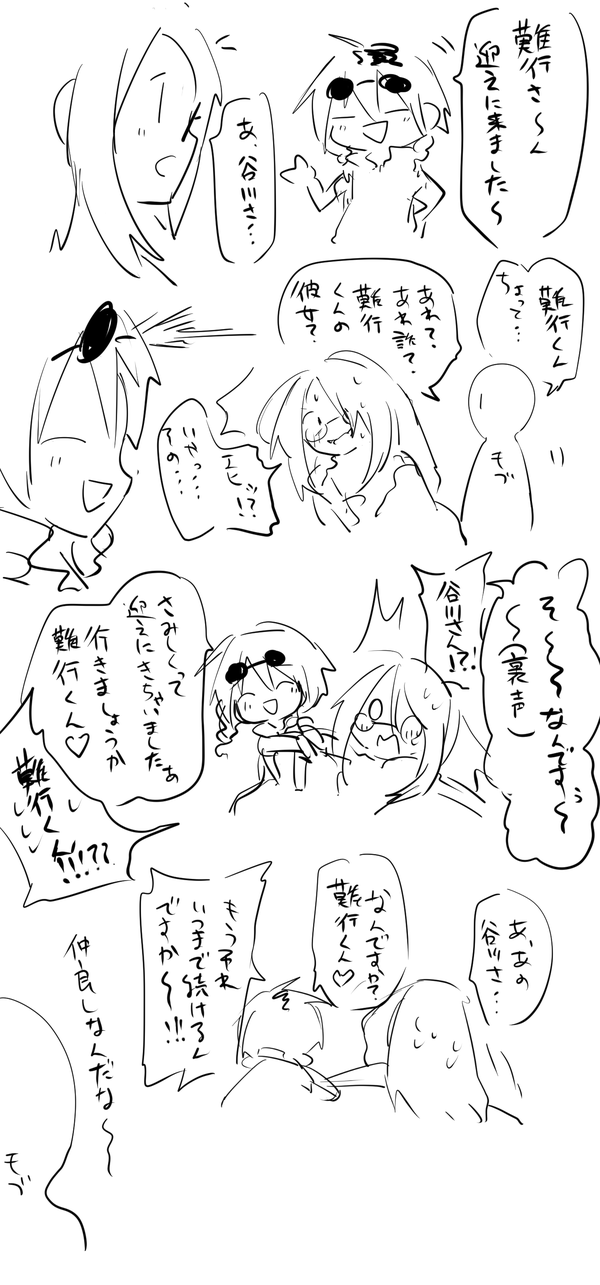 難行さ〜ん
迎えに来ました〜
あ、谷川さ…
難行くん
ちょって…
モブ
あれて、
あれ誰て、
難行
くんの
彼女？
エヒッ!?
いやっ…
その…
そ〜〜なんですぅ〜
〜(裏声)
谷川さん!?!
さみしくって
迎えにきちゃいましたぁ
行きましょうか
難行くん♡
難行くん!!!??
あ、あの
谷川さ…
なんですか？
難行くん♡
もうそれ
いつまで続けるん
ですか〜!!!
仲良しなんだな〜
モブ